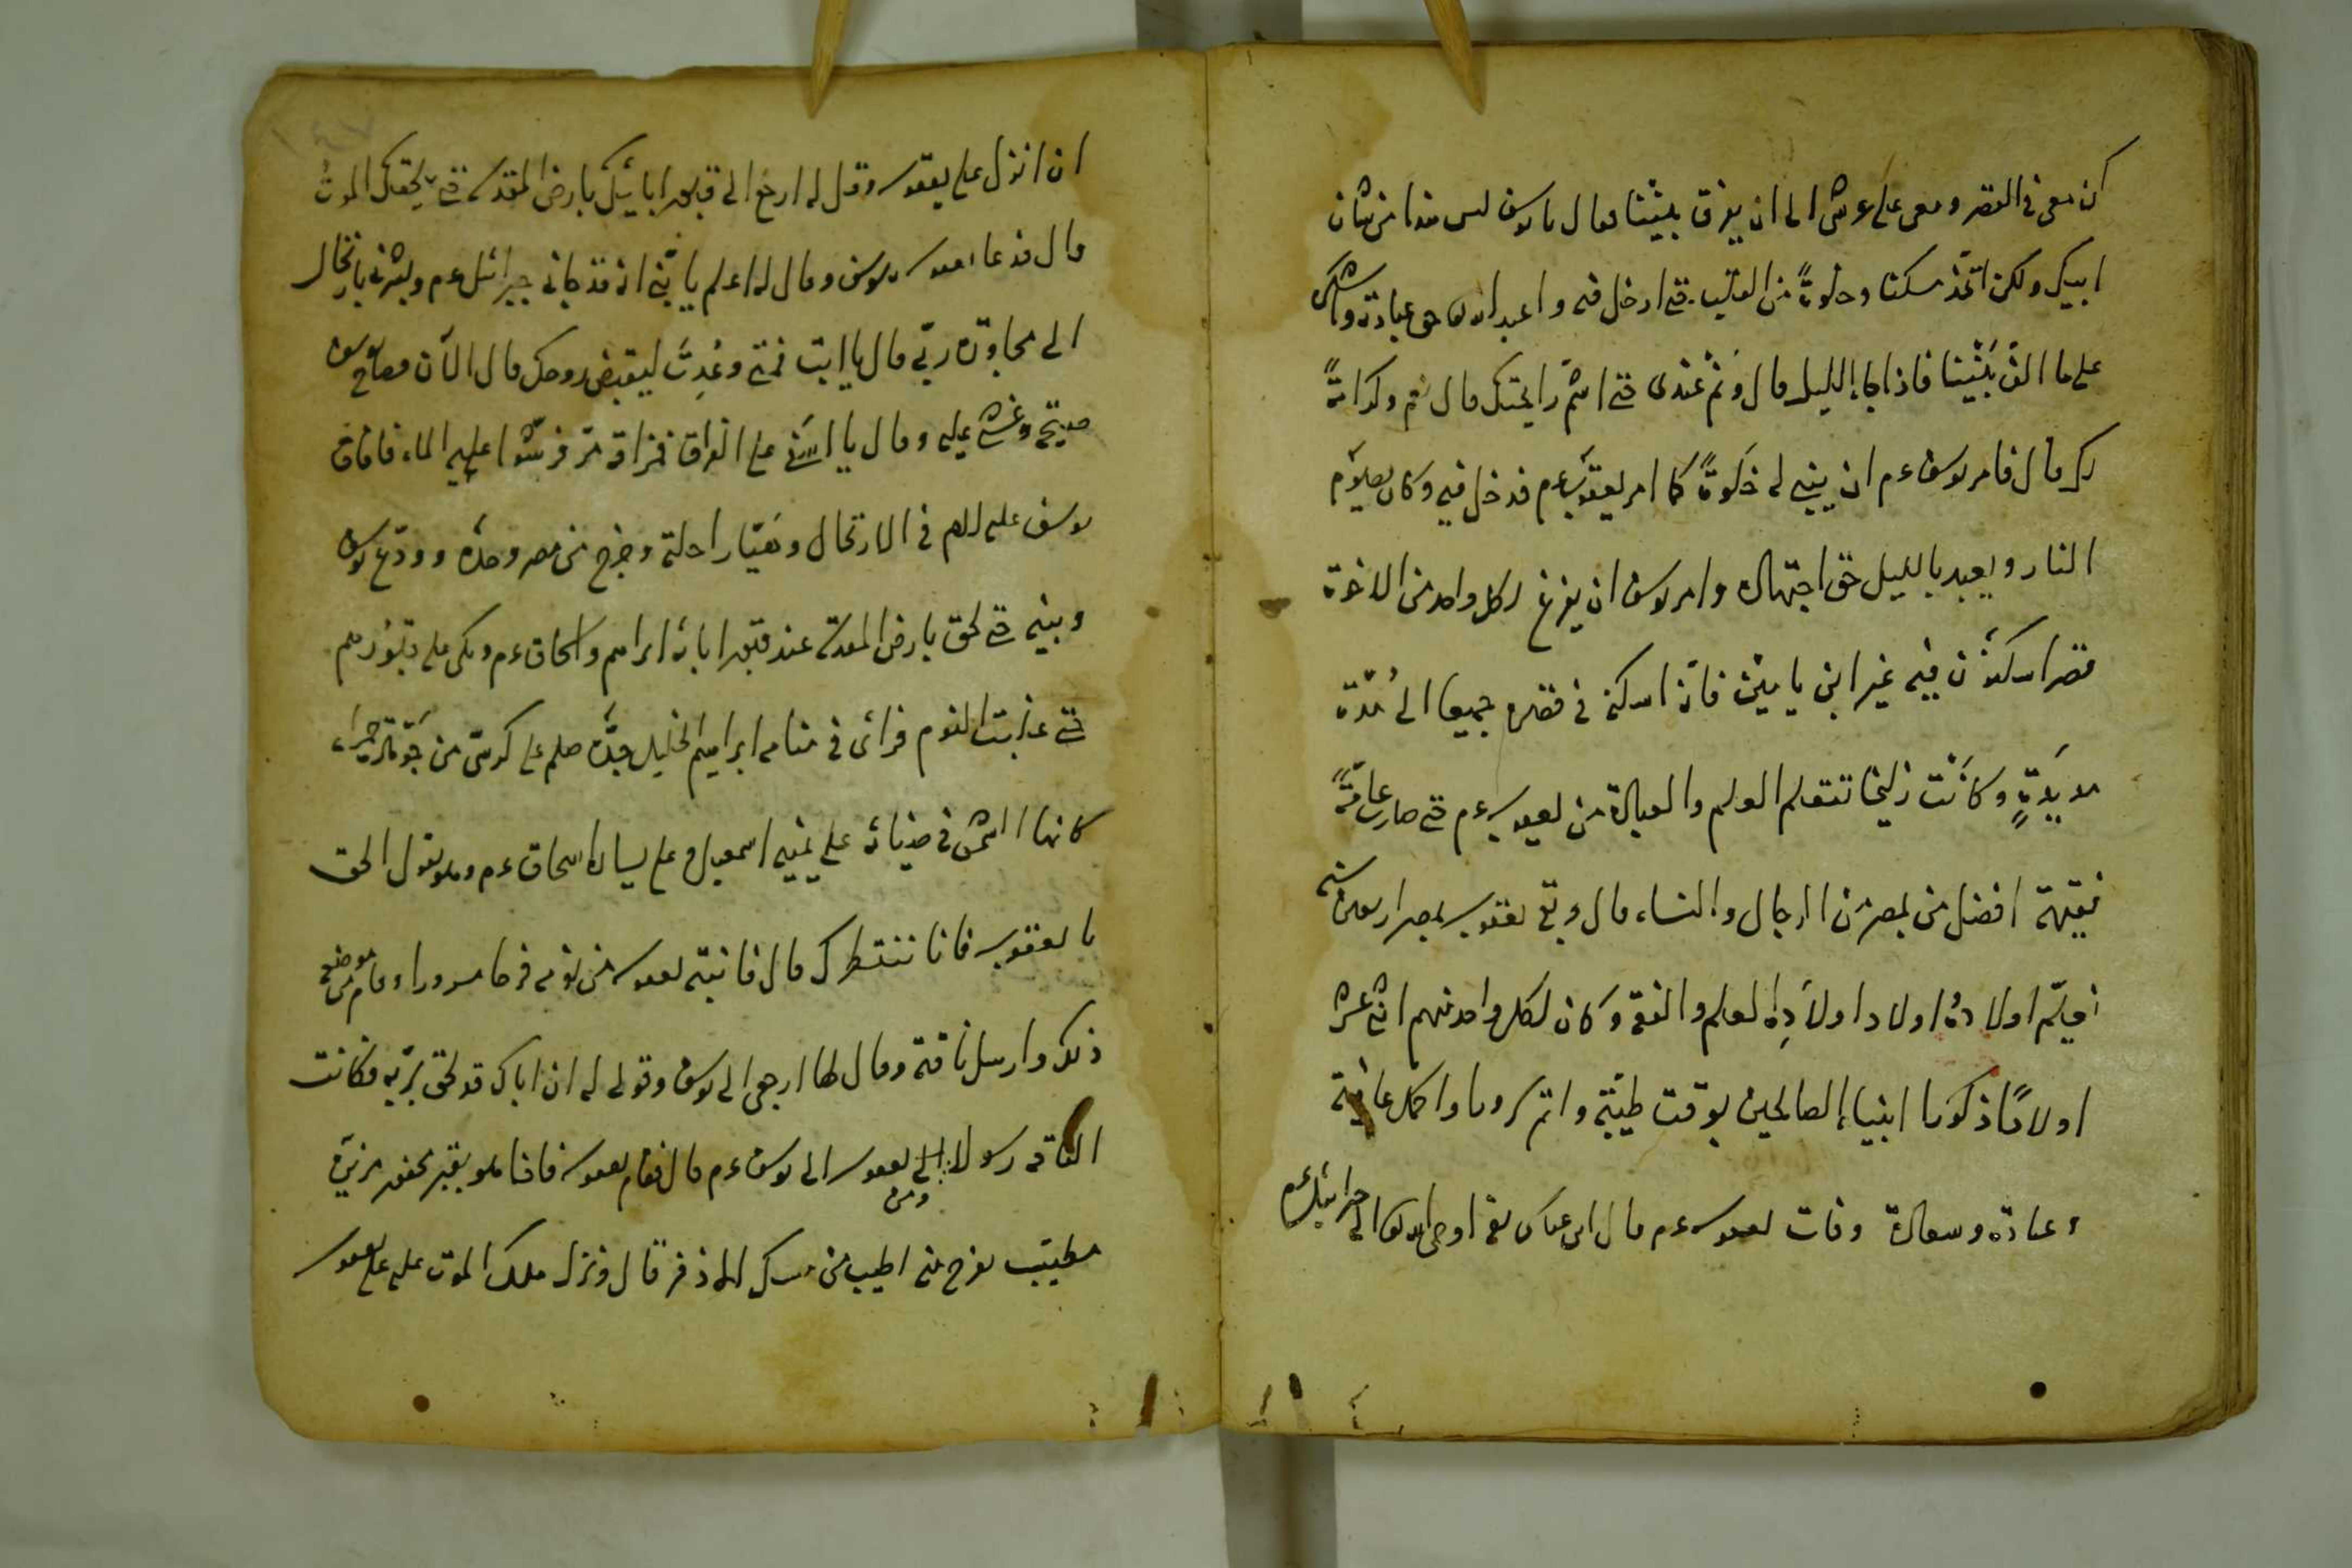 كن معى فى القصر ومعى على عرشى الى ان يفرق بيننا فقال يا يوسف ليس هذا من شان
ابيك ولكن اتخذ مسكنا وخلوة من القصب حتى ادخل فيه واعبد الله تعا حق عبادته واشكر
على ما الف بيننا فاذا جاء الليل قال ونم عندى حتى اشم رايحتك قال نعم وكرامة
لك قال فامر يوسف عم ان يبنى له خلوة كما امر يعقوب عم فدخل فيه وكان يصوم
النهار ويعبد بالليل حق اجتهاده وامر يوسف ان يفرغ لكل واحد من الاخوة
قصرا يسكنون فيه غير ابن يامين فانه اسكنه فى قصره جميعا الى مدة
مديدة وكانت زليخا تتعلم العلم والعبادة من يعقوب عم حتى صار عالمة
فقيهة افضل من بمصر من الرجال والنساء قال وبقى يعقوب بمصر اربعين سنة
يعلم اولاده واولاد اولاده العلم والفقه وكان لكل واحد منهم اثنى عشر
اولادا ذكورا انبياء الصالحين بوقت طيبة واتم سرورا واكمل عافية
وعبادة وسعادة وفات يعقوب عم قال ابن عباس رضى اوحى الله تعا الى جبرائيل عم
ان انزل على يعقوب وقل له ارجع الى قبور ابائيك بارض المقدسة حتى يلحقك الموت
قال فدعا يعقوب يوسف وقال له اعلم يا بنى انه قد جانى جبرائيل عم وبشرنى بارتحال
الى مجاورة ربى قال يا ابت فمتى وعدت ليقبض روحك قال الآن فصاح يوسف
صيحة وغشى عليه وقال يا اسفى على الفراق فرشوا عليه الماء فافاق
يوسف عليه السلم فى الارتحال وهيا راحلته وخرج من مصر وحده وودع يوسف
وبنيه حتى لحق بارض المقدسة عند قبور ابائه ابراهيم واسحاق عم وبكى على قبورهم
حتى غلبت النوم فراى فى منامه ابراهيم الخليل جده صلعم على كرسى من جوهرة حمراء
كانها الشمس فى ضيائه على يمينه اسمعيل وعلى يساره اسحاق عم وهو يقول الحق
يا يعقوب فانا ننتظرك قال فانتبه يعقوب من نومه فرحا مسرورا وقام من موضعه
ذلك وارسل ناقته وقال لها ارجعى الى يوسف وقولى له ان اباك قد لحق بربه فكانت
الناقة رسولا من يعقوب الى يوسف عم قال فقام يعقوب فاذا هو بقبر محفور مزين
مطيب يفوح منه اطيب من مسك الاذفر قال ونزل ملك الموت عليه على يعقوب